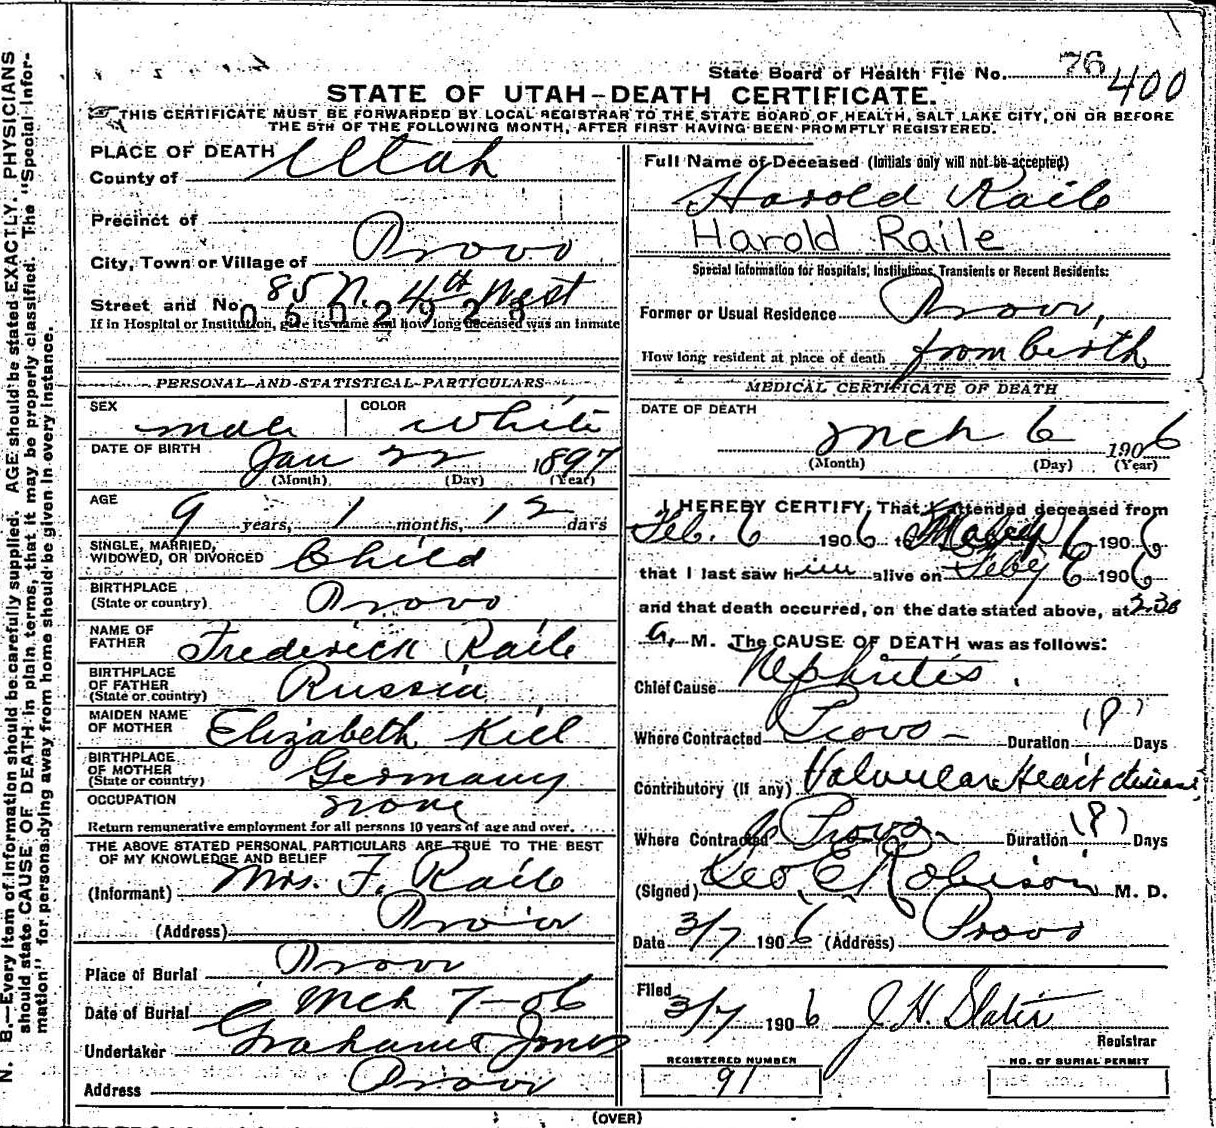 State Board of Health File No. 76 400
STATE OF UTAH–DEATH CERTIFICATE.
THIS CERTIFICATE MUST BE FORWARDED BY LOCAL REGISTRAR TO THE STATE BOARD OF HEALTH, SALT LAKE CITY, ON OR BEFORE
THE 5TH OF THE FOLLOWING MONTH, AFTER FIRST HAVING BEEN PROMPTLY REGISTERED.
PLACE OF DEATH
County of Utah
Precinct of
City, Town or Village of Provo
Street and No. 85 N. 4th West
0602928
If in Hospital or Institution, give its name and how long deceased was an inmate
PERSONAL AND STATISTICAL PARTICULARS
SEX male COLOR White
DATE OF BIRTH Jan 22 1897
(Month) (Day) (Year)
AGE 9 years, 1 months, 12 days
SINGLE, MARRIED,
WIDOWED, OR DIVORCED Child
BIRTHPLACE
(State or country) Provo
NAME OF
FATHER Frederick Raile
BIRTHPLACE
OF FATHER
(State or country) Russia
MAIDEN NAME
OF MOTHER Elizabeth Kiel
BIRTHPLACE
OF MOTHER
(State or country) Germany
OCCUPATION none
Return remunerative employment for all persons 10 years of age and over.
THE ABOVE STATED PERSONAL PARTICULARS ARE TRUE TO THE BEST
OF MY KNOWLEDGE AND BELIEF
(Informant) Mrs. F. Raile
(Address) Provo
Place of Burial Provo
Date of Burial Mch 7–06
Undertaker Graham & Jones
Address Provo
Full Name of Deceased (Initials only will not be accepted)
Harold Raile
Harold Raile
Special Information for Hospitals, Institutions, Transients or Recent Residents:
Former or Usual Residence Provo,
How long resident at place of death from birth
MEDICAL CERTIFICATE OF DEATH
DATE OF DEATH
Mch 6 1906
(Month) (Day) (Year)
I HEREBY CERTIFY, That I attended deceased from
Feb. 6 1906 to 6 1906
that I last saw him alive on Feby 6 1906
and that death occurred, on the date stated above, at 2:30
a. M. The CAUSE OF DEATH was as follows:
Chief Cause Nephritis.
Where Contracted Provo – Duration (?) Days
Contributory (If any) Valvular Heart disease
Where Contracted Provo – Duration (?) Days
(Signed) Geo. E. Robison M. D.
Date 3/7 1906 (Address) Provo
Filed
3/7 1906 J. H. Slater
Registrar
REGISTERED NUMBER
91
NO. OF BURIAL PERMIT
(OVER)
N. B.—Every item of information should be carefully supplied. AGE should be stated EXACTLY. PHYSICIANS
should state CAUSE OF DEATH in plain terms, that it may be properly classified. The "Special Infor-
mation" for persons dying away from home should be given in every instance.